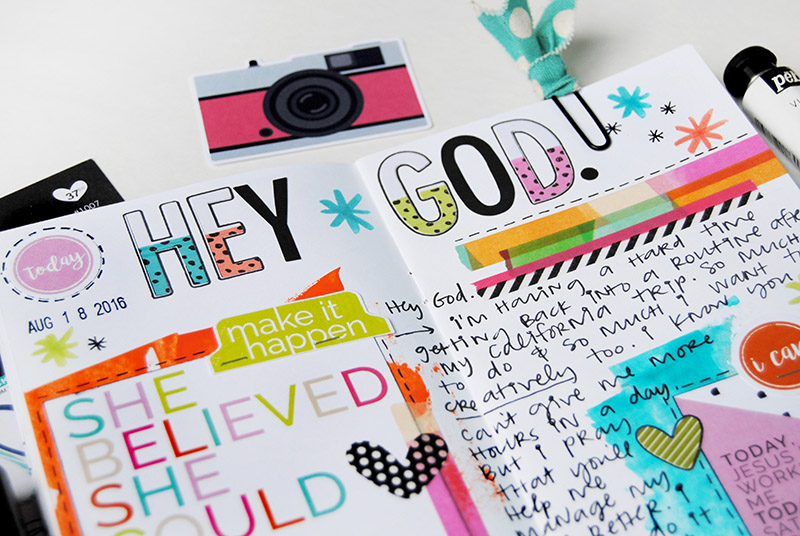 37
HEY
GOD.
today
AUG 18 2016
make it
happen
SHE
BELIEVED
SHE
COULD
Hey God.
i'm having a hard time
getting back into a routine after
my california trip. so much
to do & so much i want to
creatively too. i know you
cant give me more
hours in a day.
But i pray
that you'll
help me
manage my
better. i
do it
i can
TODAY,
JESUS,
WORK
ME.